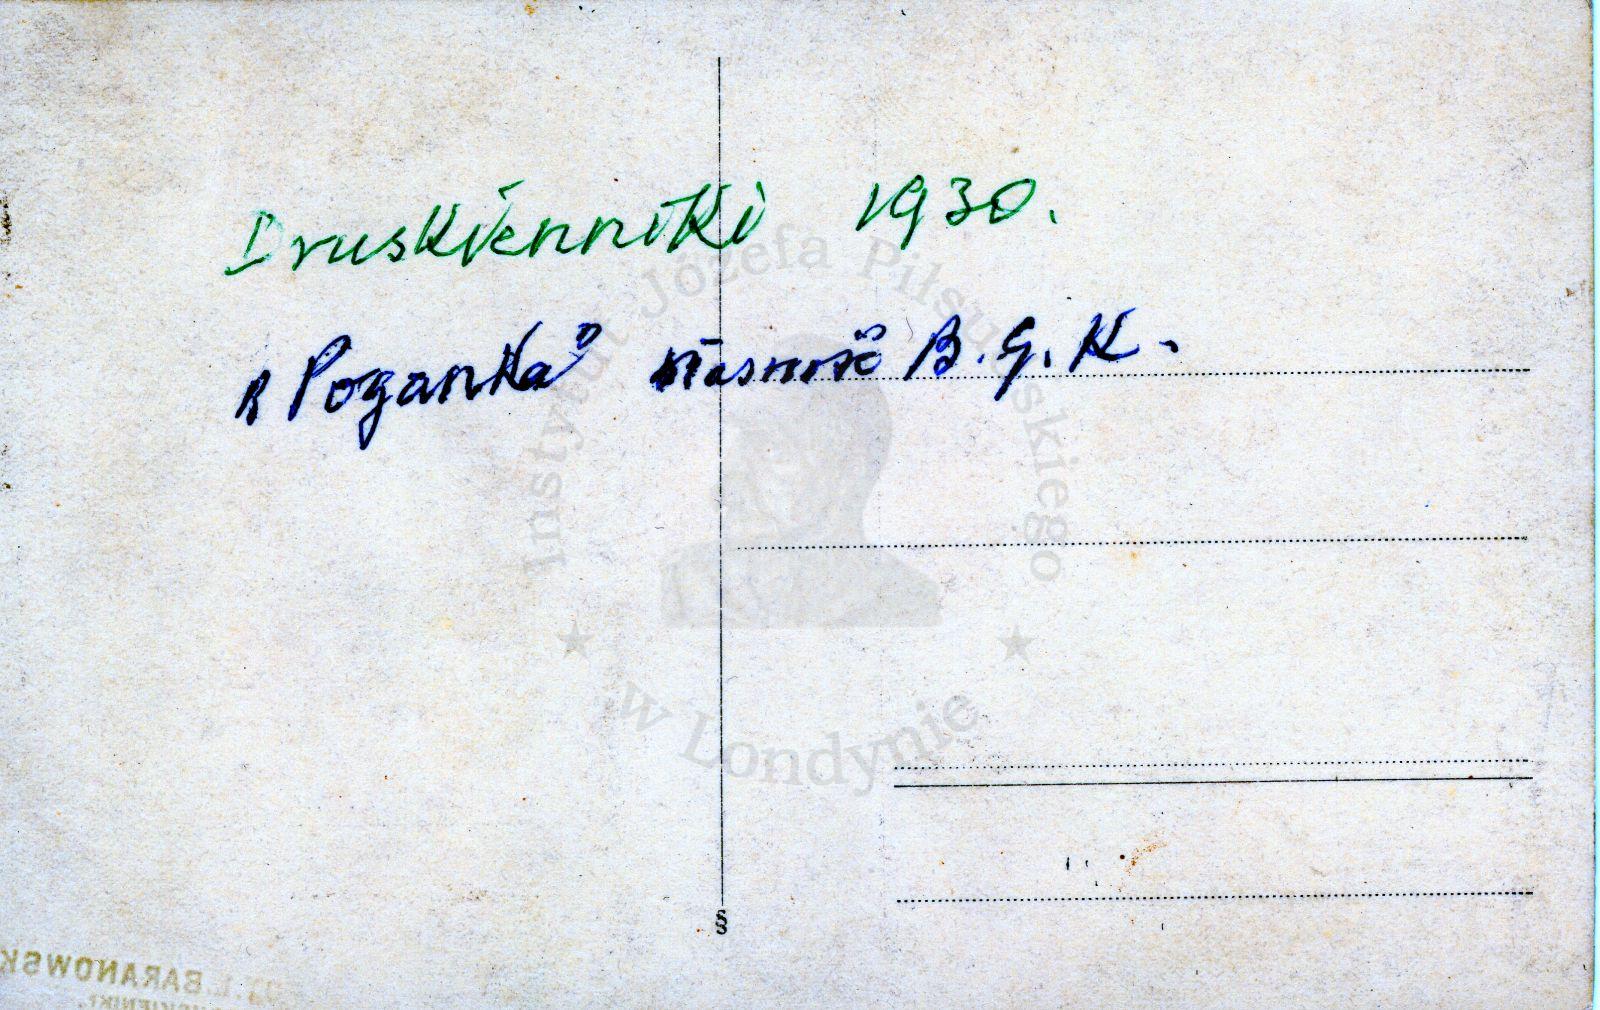 Druskienniki 1930.
"Poganka" własność B.G.K.
Instytut Józefa Piłsudskiego
★ w Londynie ★
§
L. BARANOWSK